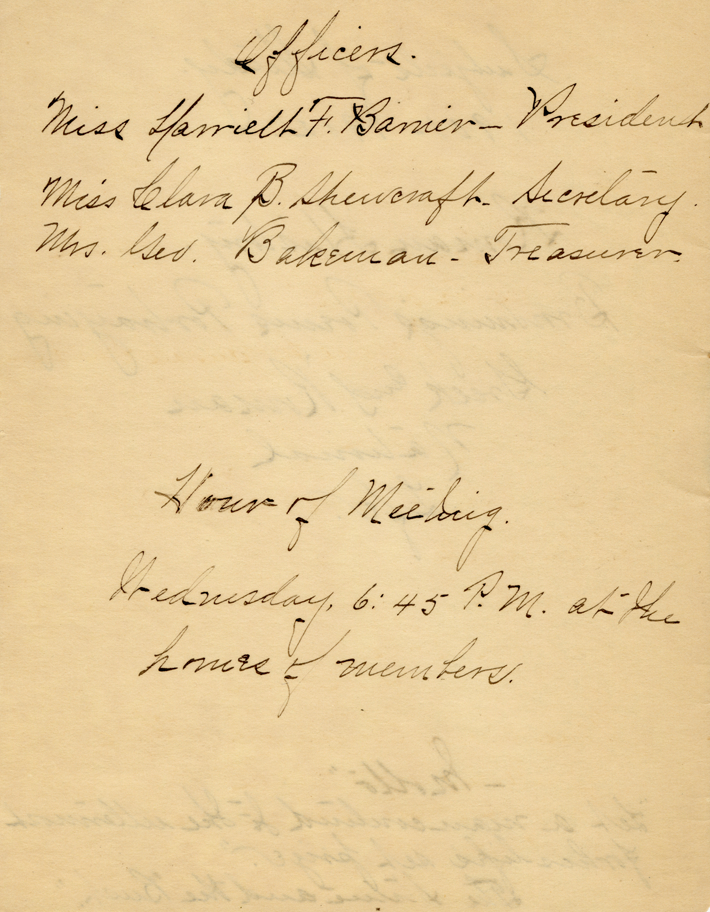 Officers.
Miss Harriett F. Barrier - President
Miss Clara B. Shewcraft - Secretary.
Mrs. Geo. Bakeman - Treasurer.
Hour of Meeting.
Wednesday, 6:45 P.M. at the
homes of members.